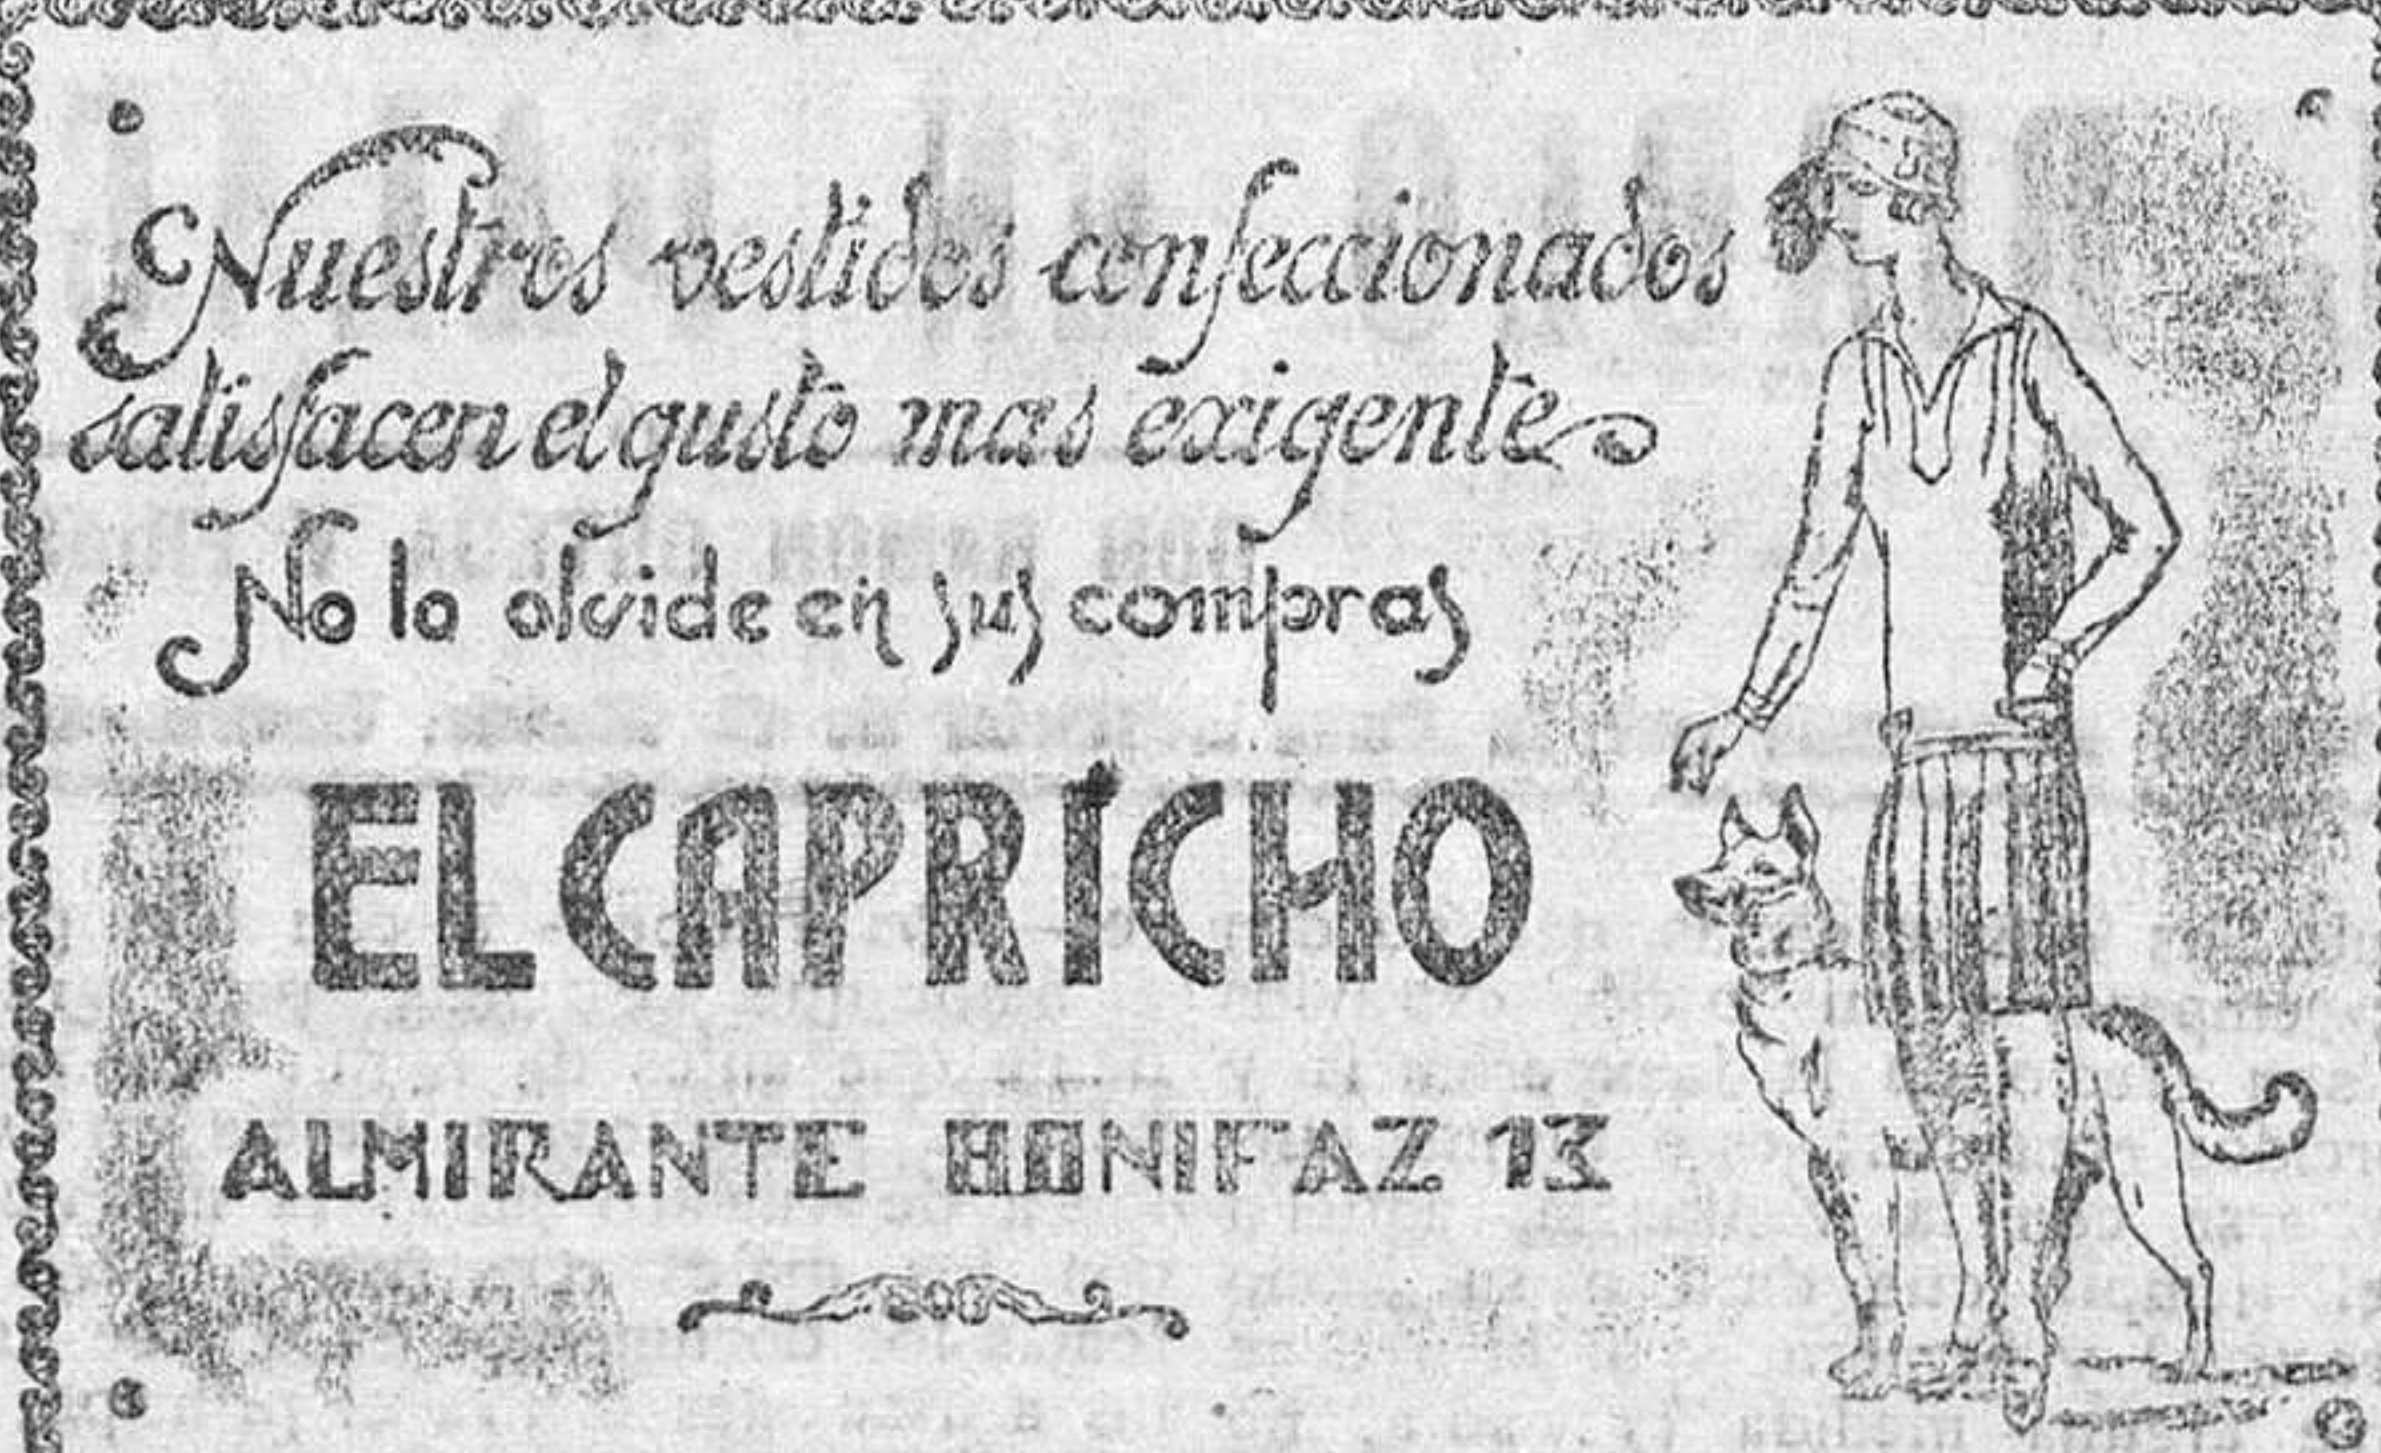 Nuestros vestidos confeccionados
satisfacen el gusto mas exigente
No lo olvide en sus compras
EL CAPRICHO
ALMIRANTE BONIFAZ 13